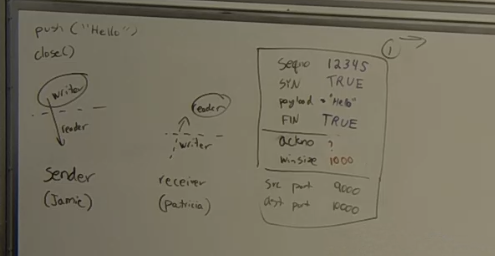 push ("Hello")
close()
writer
reader
Sender
(Jamie)
reader
writer
receiver
(patricia)
1
Seqno 12345
SYN TRUE
payload = "Hello"
FIN TRUE
ackno ?
winsize 1000
src port 9000
dst port 10000